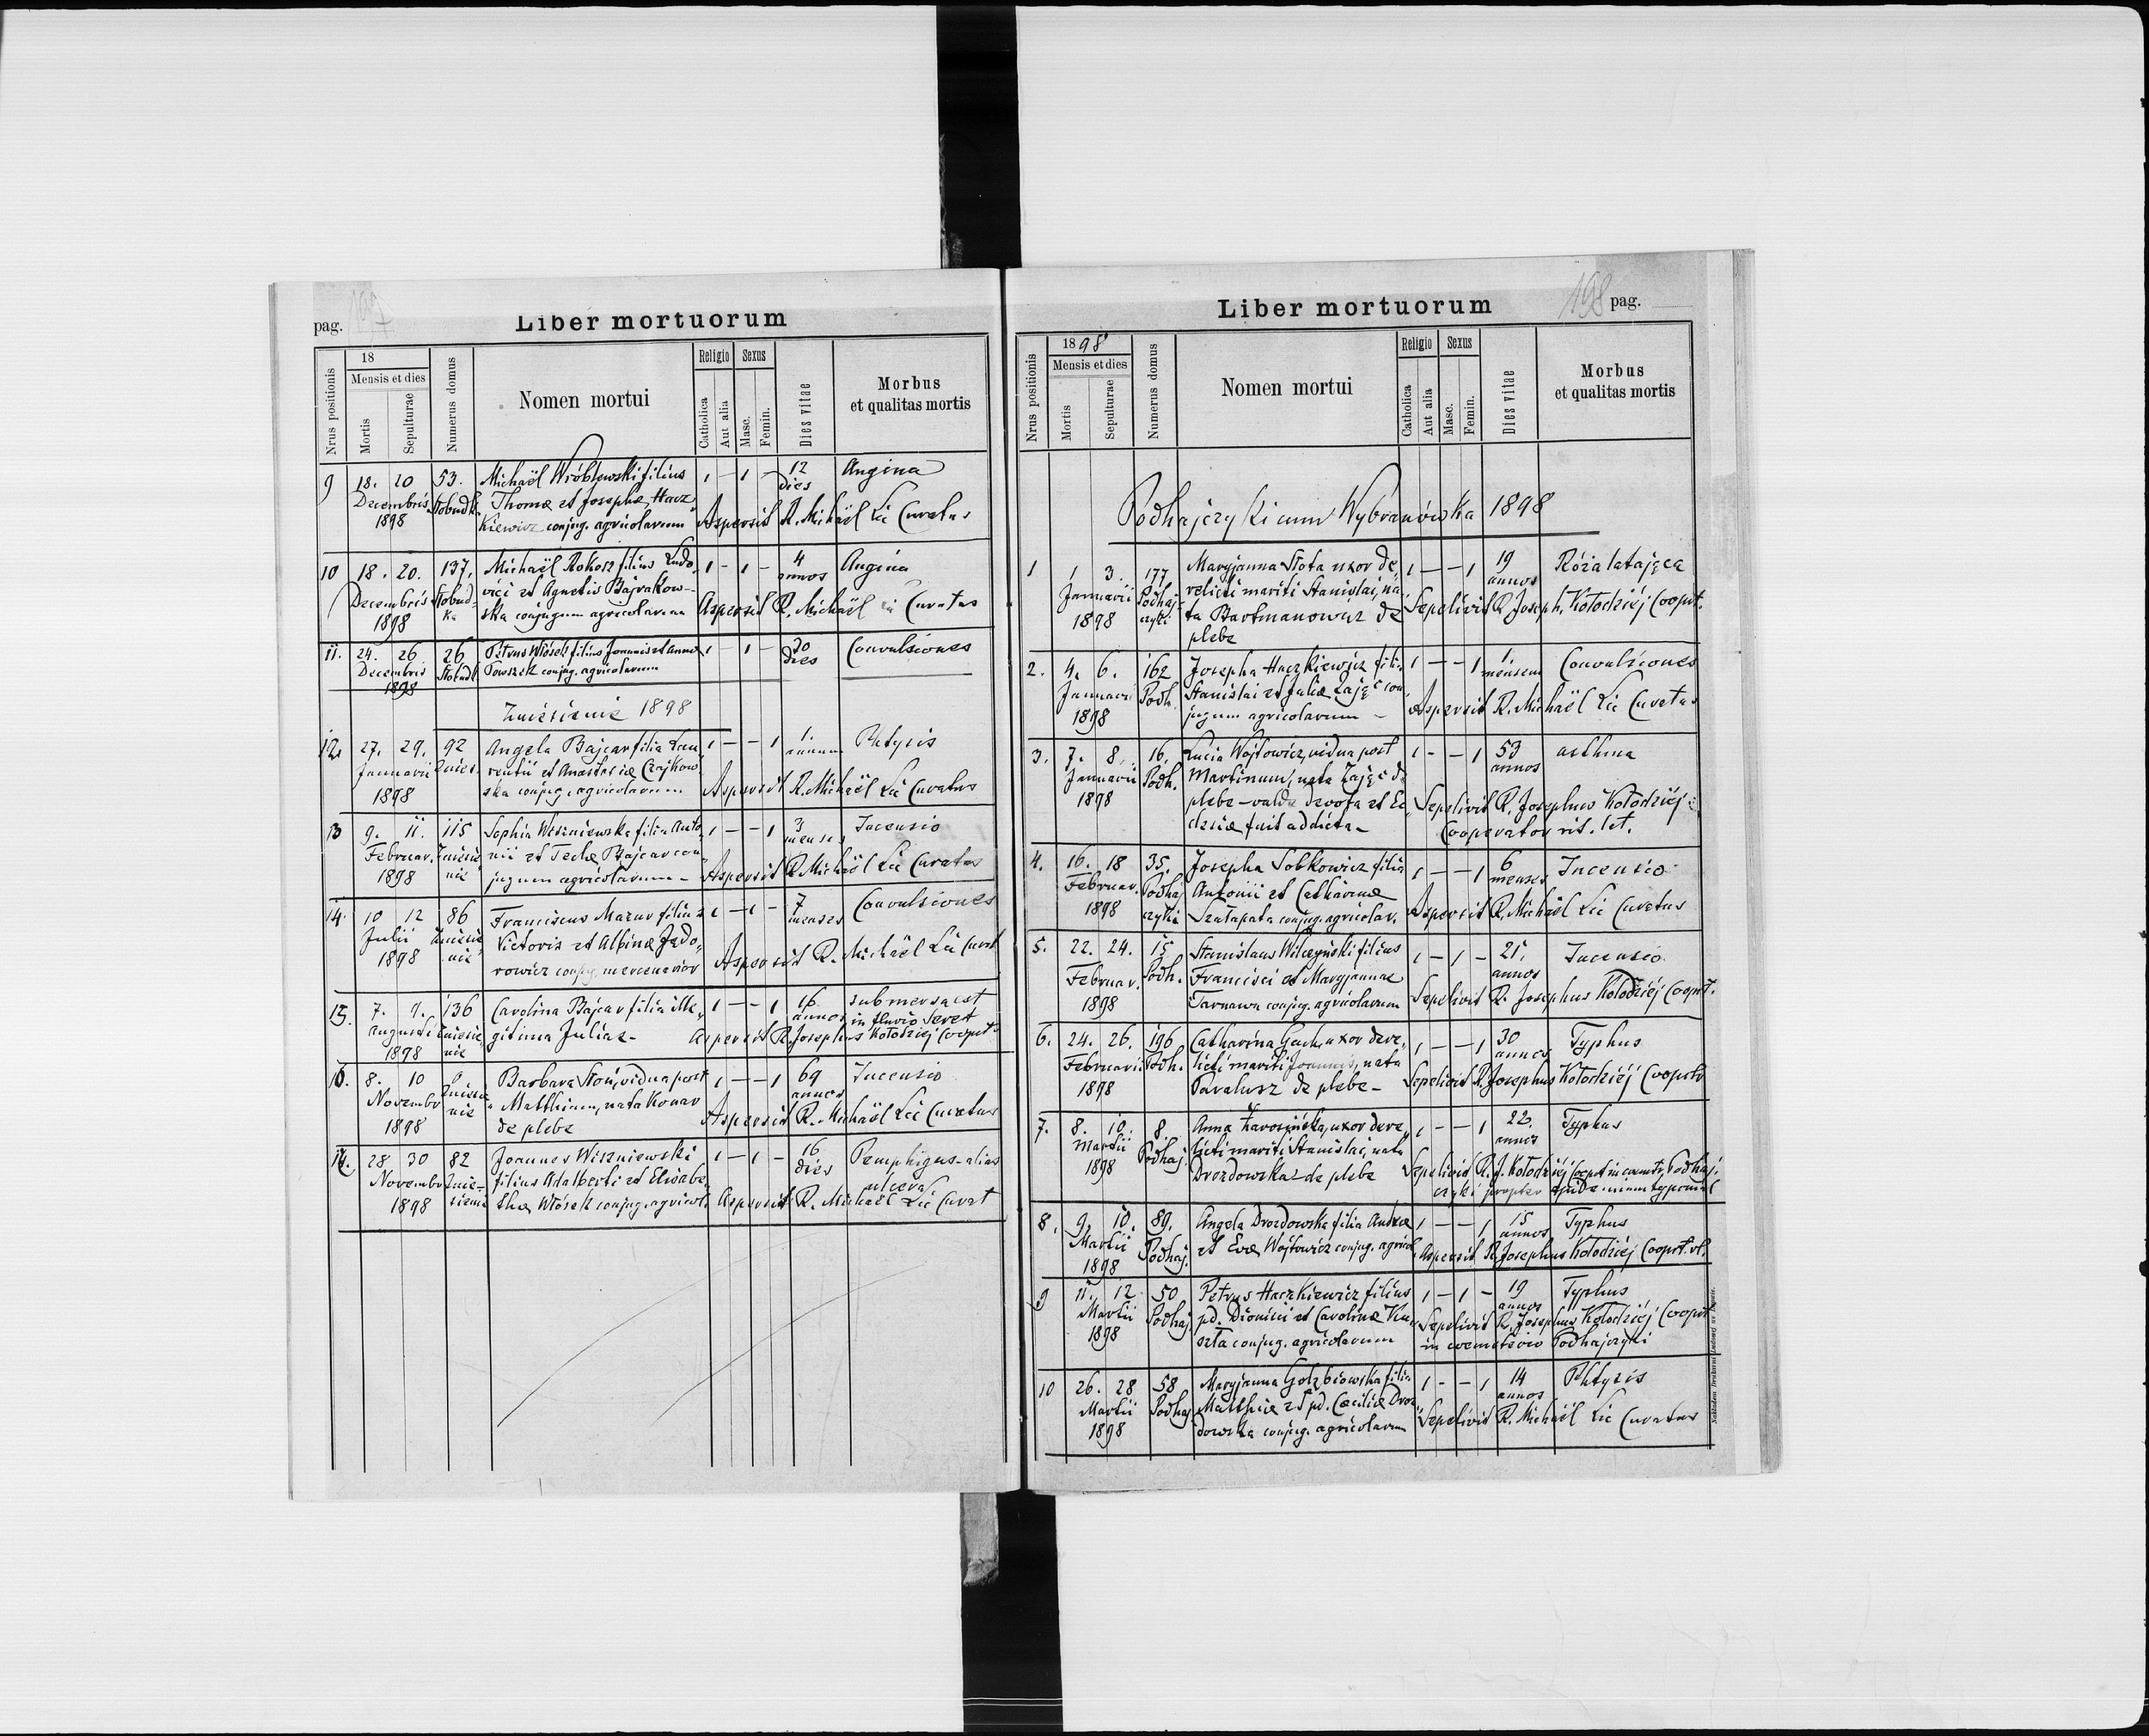 pag. 197
Liber mortuorum
Nrus positionis
18
Mensis et dies
Mortis
Sepulturae
Numerus domus
Nomen mortui
Religio
Catholica
Aut alia
Sexus
Masc.
Femin.
Dies vitae
Morbus
et qualitas mortis
9 18. 20 53. Michaël Wróblewski filius 1 – 1 – 12 Angina
Decembris Thomæ et Josephæ Hacz dies
1898 kiewicz conjug. agricolarum Aspersit R. Michaël Lic Curatus
10 18. 20. 137. Michaël Rokosz filius Ludo- 1 – 1 – 4 Angina
Decembris Słobud- vici et Agnetis Bajrakow- annos
1898 ka ska conjugum agricolarum Aspersit R. Michaël Curatus
11. 24. 26 26 Petrus Wiósek filius Joannis et Annæ 1 – 1 – 30 Convulsiones
Decembris Słobudk conjug. agricolarum dies
1898
Zniesienie 1898
12. 27. 29. 92 Angela Bajcar filia Lau 1 – – 1 1. Phtysis
Januarii Znies. rentii et Anastasiæ Czajkow annum
1898 ska conjug. agricolarum Aspersit R. Michaël Lic Curatus
13 9. 11. 115 Sophia Wiszniewska filia Anto- 1 – – 1 3 Incensio
Februar. Zniesie nii et Teclæ Bajcar con menses
1898 nie jugum agricolarum – Aspersit R. Michaël Lic Curatus
14. 10 12 86 Franciscus Mazur filius 1 – 1 – 7 Convulsiones
Julii Zniesie Victoris et Albinæ Jado- menses
1898 nie rowicz conjug. mercenarior Aspersit R. Michaël Lic Curat
15. 7. 9. 136 Carolina Bajcar filia ille- 1 – – 1 16. submersa est
Augusti Zniesie gitima Juliæ – annos in fluvio Seret
1898 nie Aspersit R. Josephus Kołodziej Cooprt
16. 8. 10 Barbara Stoń, vidua post 1 – – 1 69 Incensio
Novembr Zniesie Matthiam, nata Konar annos
1898 nie de plebe Aspersit R. Michaël Lic Curatus
28 30 82 Joannes Wiszniewski 1 – 1 – 16 Pemphigus – alias
Novembr Znie- filius Adalberti et Elisabe- dies ulcera
1898 sienie thæ Wiósek conjug. agricol. Aspersit R. Michaël Lic Curat
Liber mortuorum
198 pag.
Nrus positionis
1898
Mensis et dies
Mortis
Sepulturae
Numerus domus
Nomen mortui
Religio
Catholica
Aut alia
Sexus
Masc.
Femin.
Dies vitae
Morbus
et qualitas mortis
Podhajczyki cum Wybranówka 1898
1 1 3. 177 Maryjanna Stota uxor de- 1 – – 1 19 Róża latająca
Januarii Podhaj- relicti mariti Stanislai, na- annos
1898 czyki ta Bartmanowicz de Sepelivit R. Joseph. Kołodziej Cooprt.
plebe
2. 4. 6. 162 Josepha Haczkiewicz filia 1 – – 1 1. Convulsiones
Januarii Podh. Stanislai et Juliæ Zając con mensem
1898 jugum agricolarum – Aspersit R. Michaël Lic Curatus
3. 7. 8. 16. Lucia Wojtowicz, vidua post 1 – – 1 53 asthma
Januarii Podh. Martinum, nata Zając de annos
1898 plebe – valde devota et Ec Sepelivit R. Josephus Kołodziej
clesiæ fuit addicta – Cooperator rit. lat.
4. 16. 18 35. Josepha Sobkowicz filia 1 – – 1 6 Incensio
Februar. Podhaj Antonii et Catharinæ menses
1898 czyki Szałapata conjug. agricolar. Aspersit R. Michaël Lic Curatus
5. 22. 24. 15 Stanislaus Wilczyński filius 1 – 1 – 21. Incensio
Februar. Podh. Francisci et Maryjannæ annos
1898 Tarnawa conjug. agricolarum Sepelivit R. Josephus Kołodziej Cooprt.
6. 24. 26. 196 Catharina Gach uxor dere- 1 – – 1 30 Typhus
Februarii Podh. licti mariti Joannis, nata annos
1898 de plebe – Sepelivit R. Josephus Kołodziej Cooprtr
7. 8. 10. 8. Anna Zarosińska, uxor dere- 1 – – 1 22. Typhus
Martii Podhaj. licti mariti Stanislai, nata annos
1898 Drozdowska de plebe Sepelivit R. J. Kołodziej Cooprt in cœmetr. Podhaj-
czyki propter epidemiam
8. 9. 10. 89. Angela Drozdowska filia Andreæ 1 – – 1 15 Typhus
Martii Podhaj. et Evæ Wojtowicz conjug. agricol. annos
1898 Aspersit R. Josephus Kołodziej Cooprt. rl.
9 11. 12 50 Petrus Haczkiewicz filius 1 – 1 – 19 Typhus
Martii Podhaj pd. Dionisii et Carolinæ Ku- annos
1898 szła conjug. agricolarum Sepelivit R. Josephus Kołodziej Cooprt
in cœmeterio Podhajczyki
10 26. 28 58 Maryjanna Gołębiowska filia 1 – – 1 14 Phtysis
Martii Podhaj Matthiæ et pd. Cæciliæ Droz annos
1898 dowska conjug. agricolarum Sepelivit R. Michaël Lic Curatus